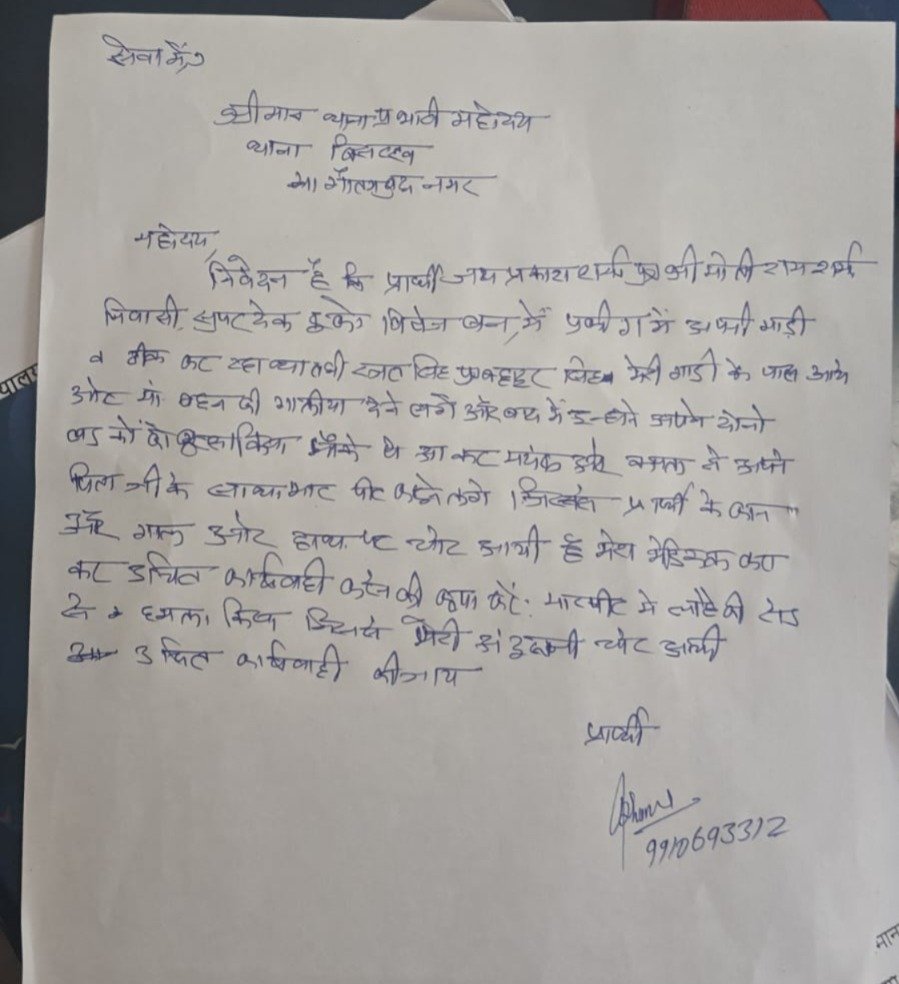 सेवा में,
श्रीमान थाना प्रभारी महोदय
थाना बिसरख
गौतमबुद्ध नगर
महोदय,
निवेदन है कि प्रार्थी जय प्रकाश शर्मा पुत्र श्री मोती राम शर्मा
निवासी सुपरटेक इको विलेज वन, में पार्किंग में अपनी गाड़ी
ठीक कर रहा था तभी सिंह पुत्र सिंह मेरी गाडी के पास आये
ओर मां बहन की गालीया देने लगे और बाद में उन्होने अपने दोनो
लडकों को मौके पे आकर मयंक और ने अपने
पिता जी के साथ मार पीट करने लगे। जिससे प्रार्थी के कान
और गाल ओर हाथ पर चोट आयी है मेरा मेडिकल करा
कर उचित कार्यवाही करने की कृपा करें। मारपीट मे लोहे की रोड
से हमला किया जिससे मेरी अंदरूनी चोट आयी
उचित कार्यवाही की जाय
प्रार्थी
9910693312
पालर
मान